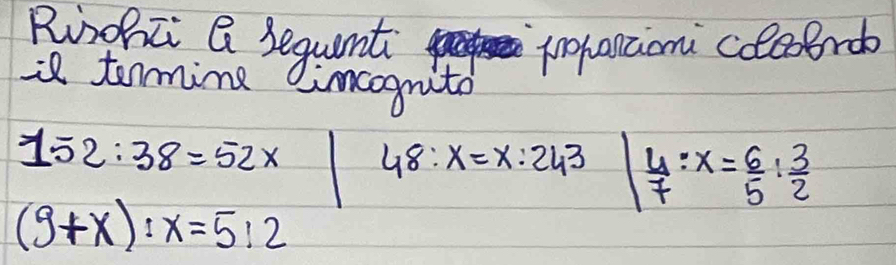 Risolvi le seguenti proporzioni calcolando
il termine incognito
152:38=52x | 48:x=x:243 | 4/7:x=6/5:3/2
(9+x):x=5:2